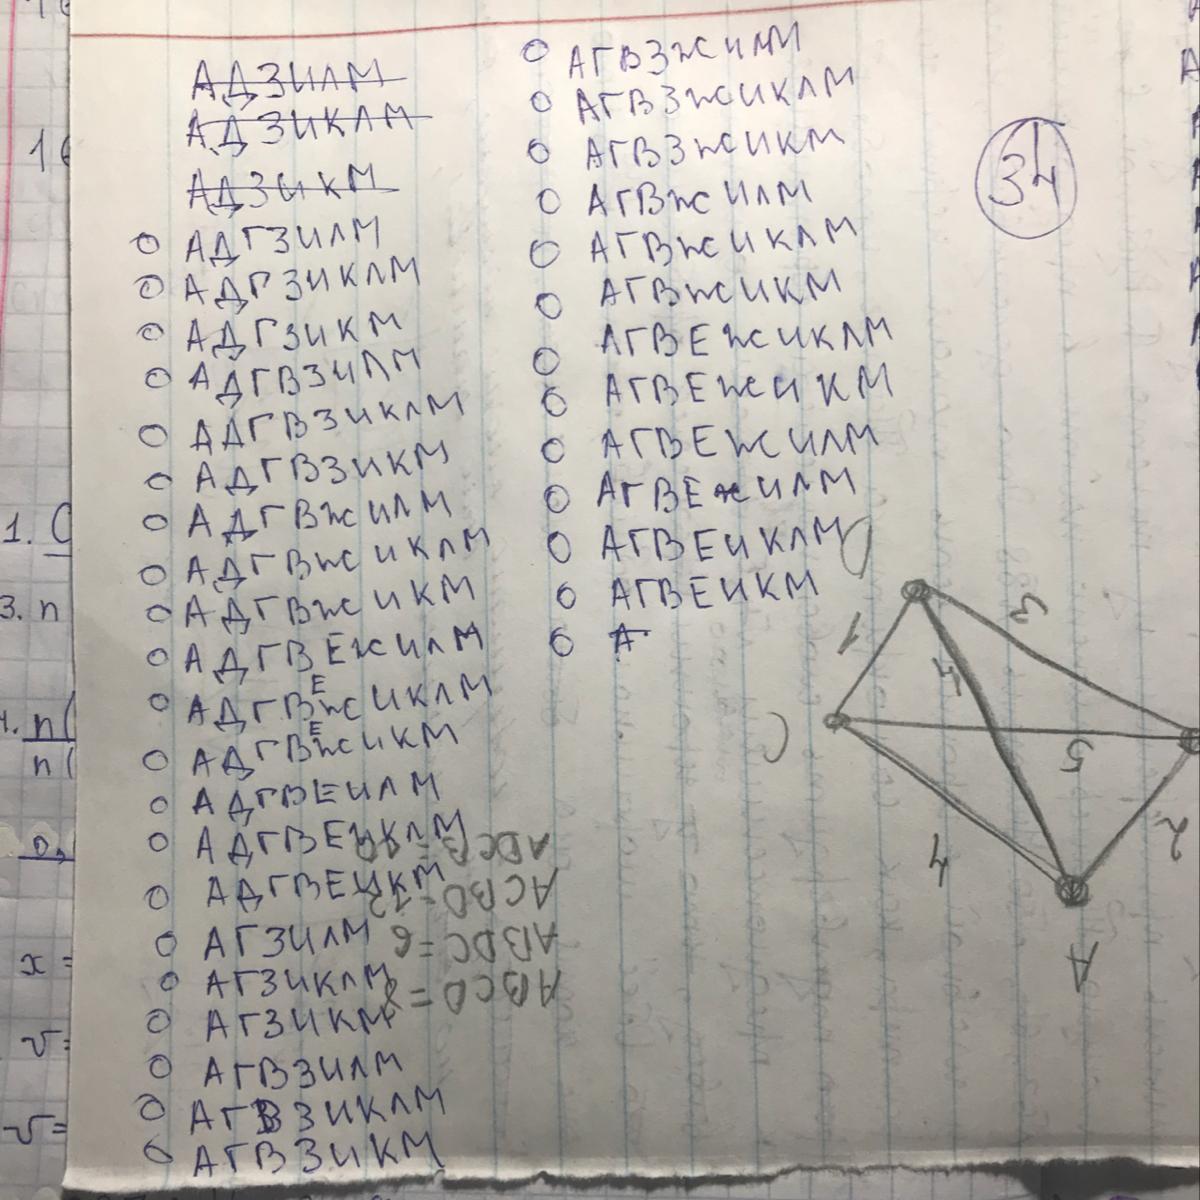 АДЗИЛМ
АДЗИКЛМ
АДЗИКМ
АДГЗИЛМ
АДГЗИКЛМ
АДГЗИКМ
АДГВЗИЛМ
АДГВЗИКЛМ
АДГВЗИКМ
АДГВЖИЛМ
АДГВЖИКЛМ
АДГВЖИКМ
АДГВЕЖИЛМ
АДГВЕЖИКЛМ
АДГВЕЖИКМ
АДГВЕИЛМ
АДГВЕИКЛМ
АДГВЕИКМ
АГЗИЛМ
АГЗИКЛМ
АГЗИКМ
АГВЗИЛМ
АГВЗИКЛМ
АГВЗИКМ
АГВЗЖИЛМ
АГВЗЖИКЛМ
АГВЗЖИКМ
АГВЖИЛМ
АГВЖИКЛМ
АГВЖИКМ
АГВЕЖИКЛМ
АГВЕЖИКМ
АГВЕЖИЛМ
АГВЕЖИЛМ
АГВЕИКЛМ
АГВЕИКМ
А
34
D
3
1
C
5
4
2
A
ABCD = 8
ABDC = 6
ACBD
ADCB
16
1. C
3. n
n(
n(
0,
x =
v =
v =